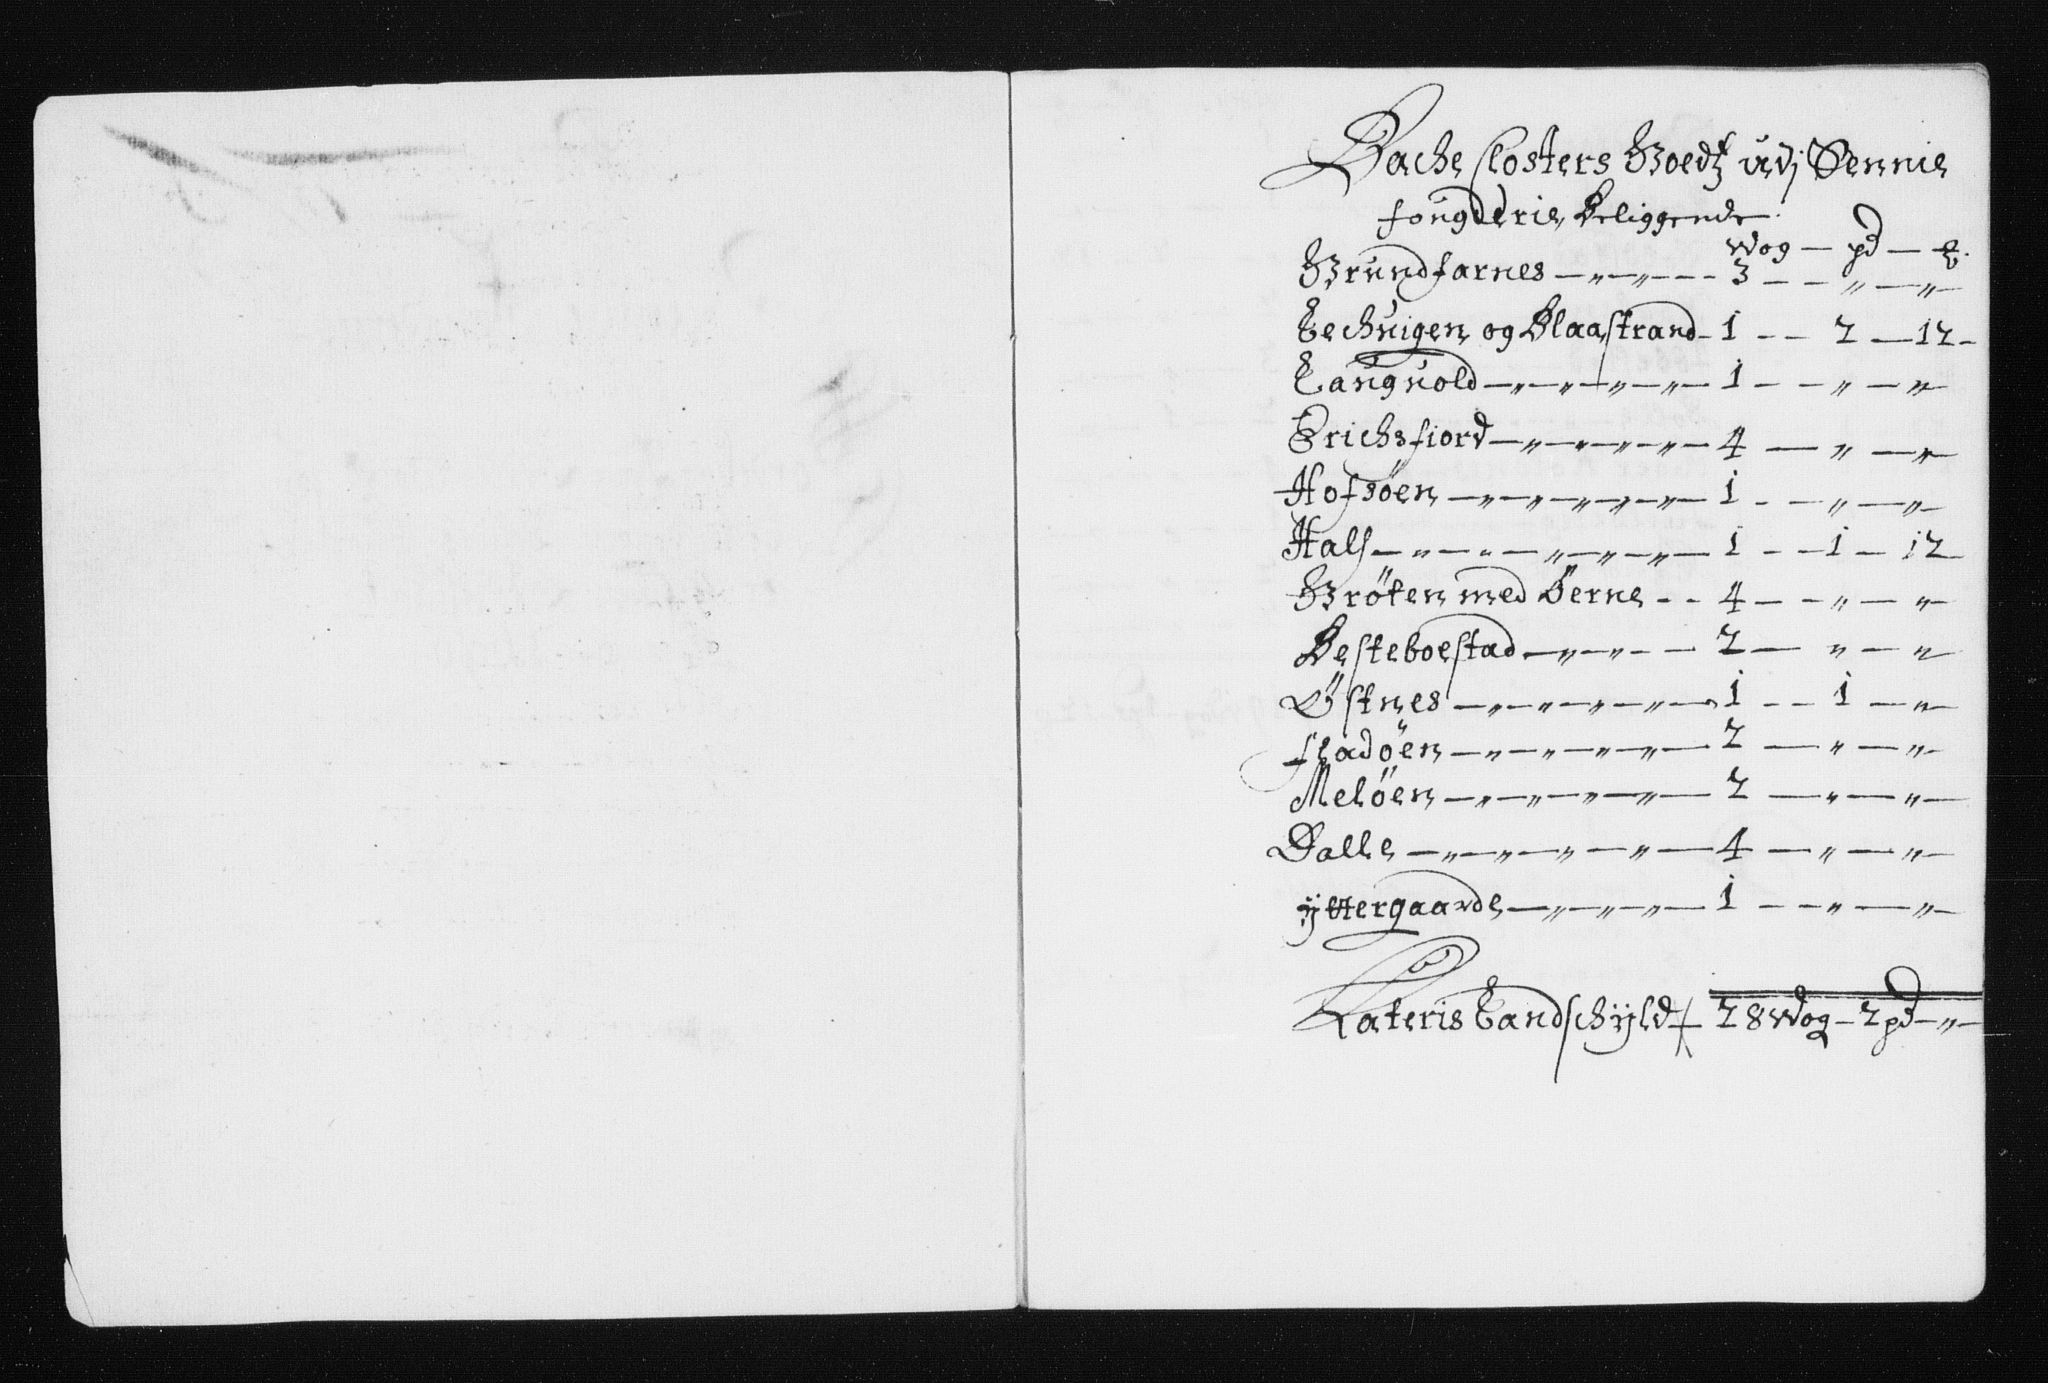 Bache Closters Goedtz udj Sennie
fougderie Beliggende.
Wog — pd — £.
Grundfarnes — „ — „ — 3 — — „ — „ —
Lechuigen og Blaastrand — 1 — — 2 — 12 —
Languold — „ — „ — „ — „ — 1 — — „ — „ —
Erichsfiord — „ — „ — „ — „ — 4 — „ — „ —
Hofsöen — „ — „ — „ — „ — „ — 1 — — „ — „ —
Half — „ — „ — „ — „ — „ — 1 — — 1 — 12 —
Gröten med Öerne — — 4 — — „ — „ —
Besteboestad — „ — „ — — 2 — „ — „ —
Östnes — „ — „ — „ — „ — 1 — — 1 — „ —
fladöen — „ — „ — „ — „ — 2 — „ — „ —
Melöen — „ — „ — „ — „ — 2 — „ — „ —
Dalle — „ — „ — „ — „ — 4 — „ — „ —
ÿttergaarde — „ — „ — „ — 1 — — „ — „ —
Lateris Landschÿld — 28 Wog — 2 pd — „ —